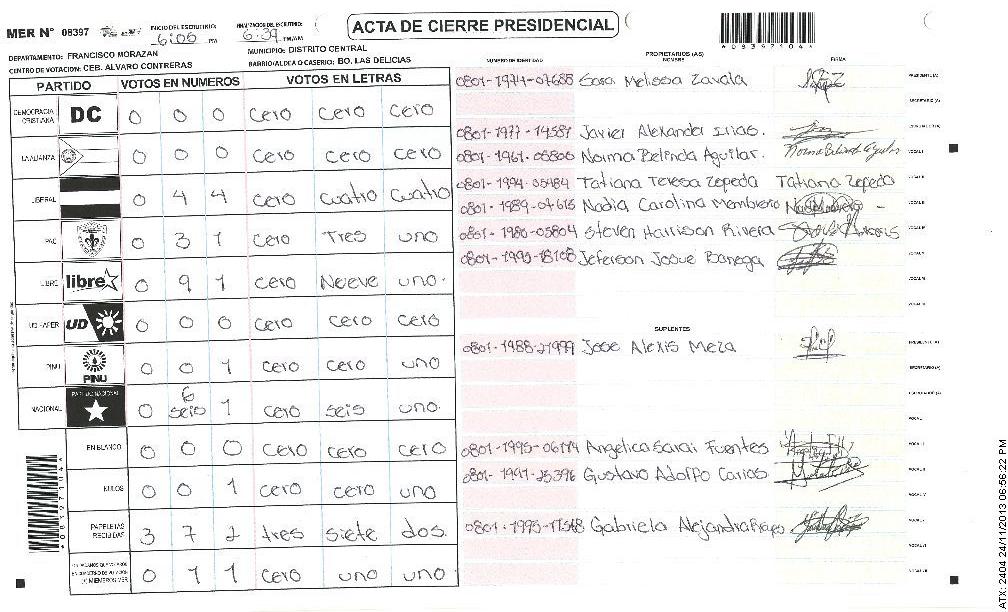 MER N° 08397
INICIO DEL ESCRUTINIO: 6:06 PM
FINALIZACION DEL ESCRUTINIO: 6:39 PM/AM
ACTA DE CIERRE PRESIDENCIAL
*08397104*
DEPARTAMENTO: FRANCISCO MORAZAN
MUNICIPIO: DISTRITO CENTRAL
CENTRO DE VOTACION: CEB. ALVARO CONTRERAS
BARRIO/ALDEA O CASERIO: BO. LAS DELICIAS
PARTIDO VOTOS EN NUMEROS VOTOS EN LETRAS
DEMOCRACIA CRISTIANA DC 0 0 0 cero cero cero
LA ALIANZA 0 0 0 cero cero cero
LIBERAL 0 4 4 cero cuatro cuatro
PAC 0 3 1 cero Tres uno
LIBRE libre 0 9 1 cero Nueve uno.
UD-FAPER UD 0 0 0 cero cero cero
PINU PINU 0 0 1 cero cero uno
NACIONAL PARTIDO NACIONAL 0 6 seis 1 cero seis uno.
EN BLANCO 0 0 0 cero cero cero
NULOS 0 0 1 cero cero uno
PAPELETAS RECIBIDAS 3 7 2 tres siete dos.
0 1 1 cero uno uno
*08397104*
PROPIETARIOS (AS)
NUMERO DE IDENTIDAD NOMBRE FIRMA
0801-1974-07688 Sara Melissa Zavala PRESIDENTE (A)
SECRETARIO (A)
0801-1977-14581 Javier Alexander Irias. ESCRUTADOR (A)
0801-1961-05800 Norma Belinda Aguilar. Norma Belinda Aguilar VOCAL I
0801-1994-05484 Tatiana Teresa Zepeda Tatiana Zepeda VOCAL II
0801-1989-07616 Nadia Carolina Membreño VOCAL III
0801-1980-05804 Steven Harrison Rivera VOCAL IV
0801-1995-18108 Jeferson Josue Banega VOCAL V
VOCAL VI
VOCAL VII
SUPLENTES
0801-1988-21999 Jose Alexis Meza PRESIDENTE (A)
SECRETARIO (A)
ESCRUTADOR (A)
VOCAL I
0801-1995-06174 Angelica Sarai Fuentes VOCAL II
0801-1947-25396 Gustavo Adolfo Carias VOCAL III
VOCAL IV
Gabriela Alejandra VOCAL V
VOCAL VI
VOCAL VII
ATX: 2404 24/11/2013 06:56:22 PM